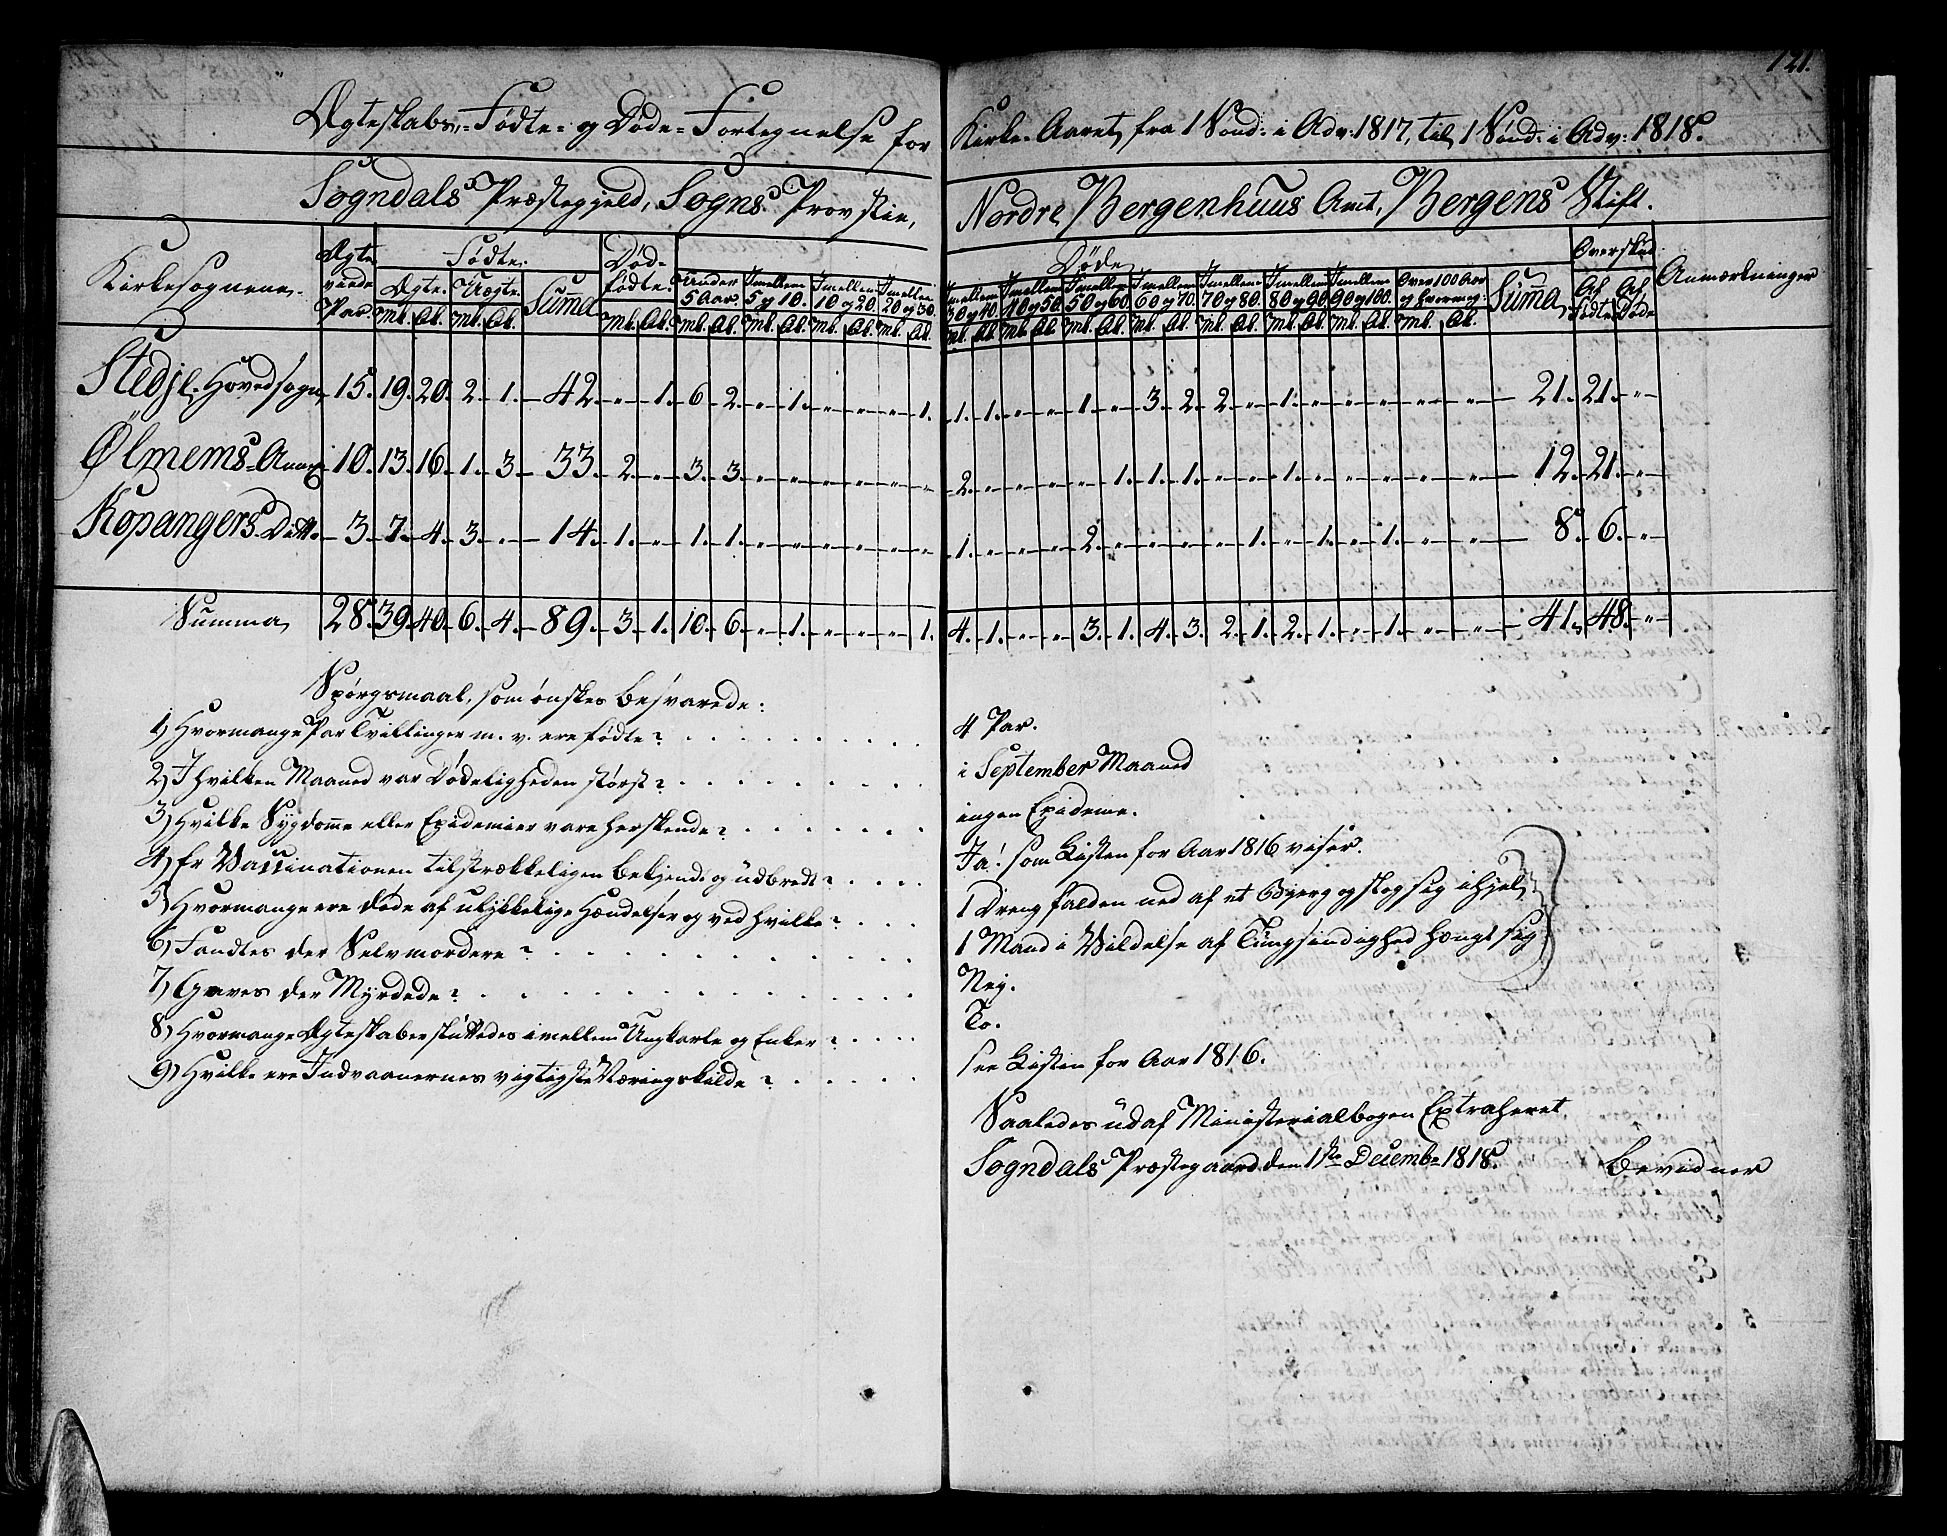 121.
Ægteskabs,- Fødte- og Døde- Fortegnelse for Kirke-Aaret, fra 1 Sønd: i Adv: 1817, til 1 Sønd: i Adv: 1818.
Sogndals Præstegjeld, Sogns Provstie, Nordre Bergenhuus Amt, Bergens Stift.
Kirkesognene. Ægte viede Par. Fødte. Død- fødte. Døde Overskud Anmærkninger
Ægte. Uægte. Suma Under 5 Aar. Imellem 5 og 10. Imellem 10 og 20. Imellem 20 og 30. Imellem 30 og 40. Imellem 40 og 50. Imellem 50 og 60. Imellem 60 og 70. Imellem 70 og 80. Imellem 80 og 90. Imellem 90 og 100. Over 100 Aar og hvormeg: Suma Af Fødte Af Døde
Mk. Qk. Mk. Qk. Mk. Qk. Mk. Qk. Mk. Qk. Mk. Qk. Mk. Qk. Mk. Qk. Mk. Qk. Mk. Qk. Mk. Qk. Mk. Qk. Mk. Qk. Mk. Qk. Mk. Qk.
Stedje Hovedsogn 15. 19. 20. 2. 1. 42. " 1. 6. 2. " 1. " " " 1. 1. 1. " " 1. " 3. 2. 2. " 1. " " " " " 21. 21. "
Ølmems-Annex 10. 13. 16. 1. 3. 33. 2. " 3. 3. " " " " " " 2. " " " " 1. 1. 1. " " 1. " " " " " 12. 21. "
Kopangers Ditto. 3. 7. 4. 3. " 14. 1. " 1. 1. " " " " " " 1. " " " 2. " " " " 1. " 1. " 1. " " 8. 6. "
Summa 28. 39. 40. 6. 4. 89. 3. 1. 10. 6. " 1. " " " 1. 4. 1. " " 3. 1. 4. 3. 2. 1. 2. 1. " 1. " " 41. 48. "
Spørgsmaal, som ønskes besvarede:
1) Hvormange Par Tvillinger m. v. ere fødte? 4 Par.
2) I hvilken Maaned var Dødeligheden størst? i September Maaned
3) Hvilke Sygdomme eller Epidemier vare herskende? ingen Epidemie.
4) Er Vaccinationen tilstrækkeligen bekjendt og udbredt? Ja! som Listen for Aar 1816 viser.
5) Hvormange ere døde af ulykkelige Hændelser og ved hvilke? 1 Dreng falden ned af et Bjerg og slog sig ihjel
6) Fandtes der Selvmordere? 1 Mand i Vildelse af Tungsindighed hængt sig
7) Gaves der Myrdede? Nej.
8) Hvormange Ægteskaber sluttedes imellem Ungkarle og Enker? To.
9) Hvilke ere Indvaanernes vigtigste Næringskilde? see Listen for Aar 1816.
Saaledes udaf Ministerialbogen Extraheret.
Sogndals Præstegaard den 1ste Decembr 1818. bevidner